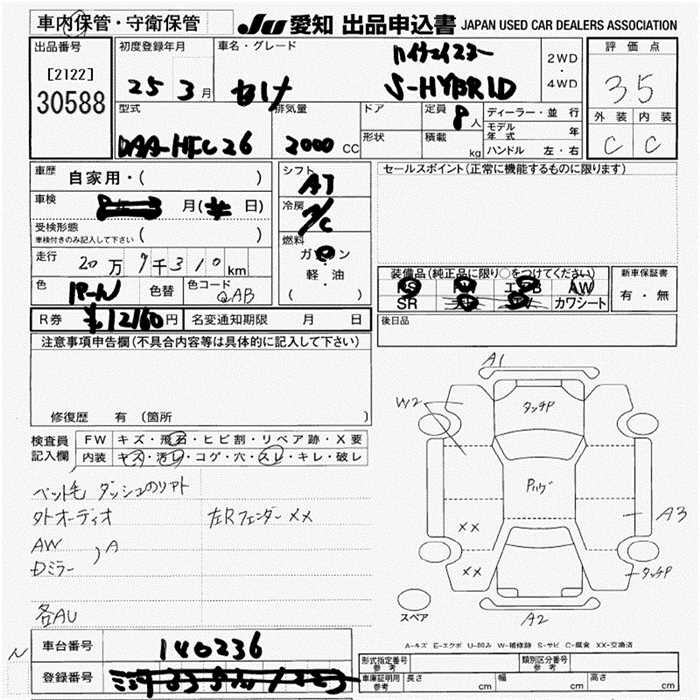 車内保管・守衛保管
JU 愛知 出品申込書 JAPAN USED CAR DEALERS ASSOCIATION
出品番号
[2122]
30588
初度登録年月
25 3月
車名・グレード
セレナ
ハイウェイスター
S-HYBRID
2WD
・
4WD
評価点
35
外装 内装
C C
型式
DAA-HFC26
排気量
2000 CC
ドア
形状
定員 8人
積載 kg
ディーラー・並行
モデル年式 年
ハンドル 左・右
車歴 自家用・( )
車検 月( 日)
受検形態
車検付きのみ記入して下さい ( )
走行 20万9千310km
色 パール 色替 色コード QAB
シフト
AT
冷房
A/C
燃料
ガソリン
軽・油
( )
セールスポイント(正常に機能するものに限ります)
装備品(純正品に限り○をつけてください)
PS PW エアB AW
SR ナビ TV カワシート
新車保証書
有・無
後日品
R券 ¥12160円 名変通知期限 月 日
注意事項申告欄(不具合内容等は具体的に記入して下さい)
修復歴 有(箇所 )
検査員記入欄
FW キズ・飛石・ヒビ割・リペア跡・X要
内装 キズ・汚レ・コゲ・穴・スレ・キレ・破レ
ペット毛 ダッシュのリアト
タトオーディオ 左Rフェンダー××
AW
Dミラー ,A
各AU
A1
W2
タッチP
Pハゲ
A3
××
××
タッチP
A2
スペア
A-キズ E-エクボ U-凹み W-補修跡 S-サビ C-腐食 XX-交換済
車台番号 140236
登録番号
型式指定番号 参考
類別区分番号 参考
車庫証明用 参考 長さ cm 幅 cm 高さ cm